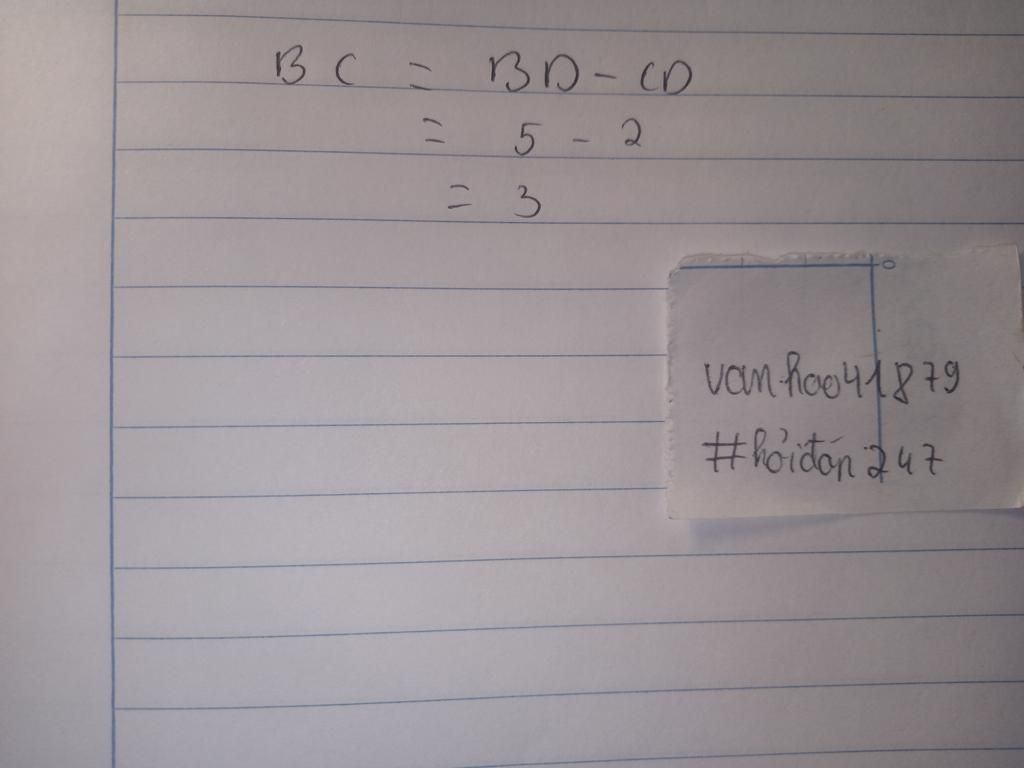 BC = BD - CD
= 5 - 2
= 3
vanhoo41879
#hỏiđán247